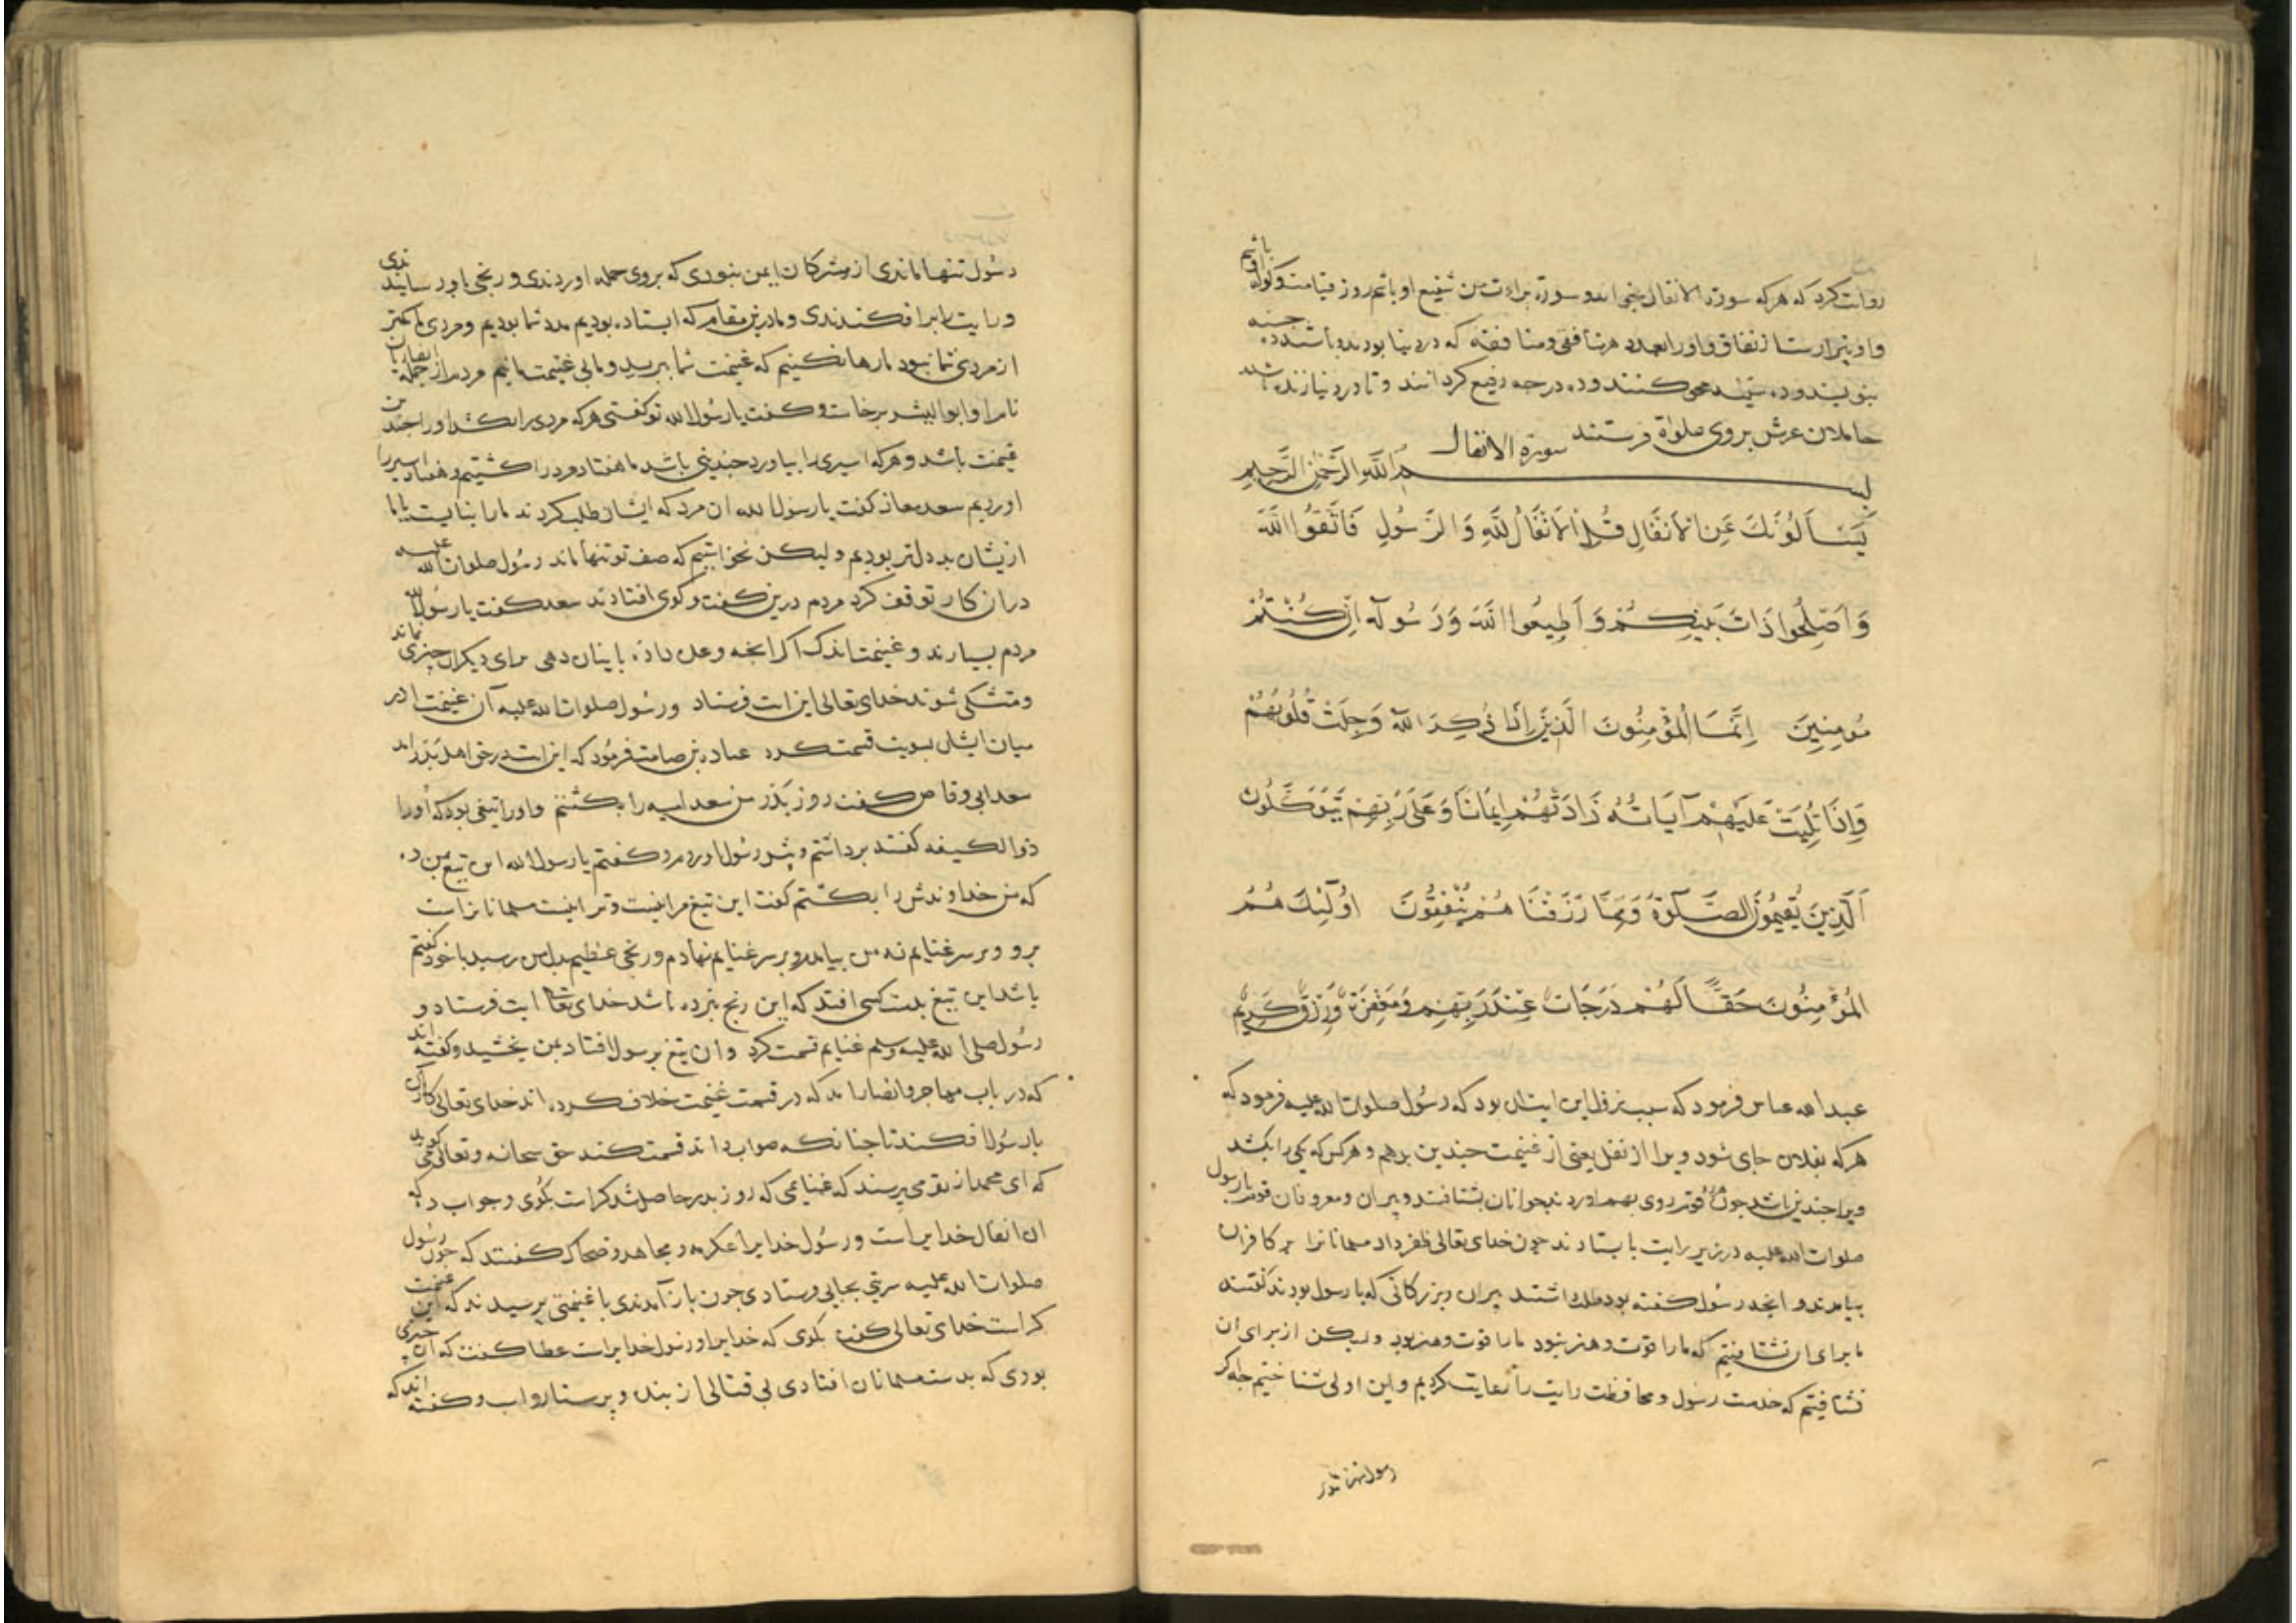 روایت کرد که هر که سورة الانفال بخواند و سورة براءت من شفیع او باشم روز قیامت و گواه
باشم
و او بیزارست از نفاق و او را بعدد هر منافقی و منافقه که در دنیا بودند و باشند ده حسنه
بنویسند و ده سیئه محو کنند و ده درجه رفیع کردانند و تا در دنیا زنده باشد
حاملان عرش بر وی صلواة فرستند سورة الانفال
بسم الله الرحمن الرحیم
يَسْأَلُونَكَ عَنِ الْأَنْفَالِ قُلِ الْأَنْفَالُ لِلَّهِ وَالرَّسُولِ فَاتَّقُوا اللَّهَ
وَأَصْلِحُوا ذَاتَ بَيْنِكُمْ وَأَطِيعُوا اللَّهَ وَرَسُولَهُ إِنْ كُنْتُمْ
مُؤْمِنِينَ إِنَّمَا الْمُؤْمِنُونَ الَّذِينَ إِذَا ذُكِرَ اللَّهُ وَجِلَتْ قُلُوبُهُمْ
وَإِذَا تُلِيَتْ عَلَيْهِمْ آيَاتُهُ زَادَتْهُمْ إِيمَانًا وَعَلَى رَبِّهِمْ يَتَوَكَّلُونَ
الَّذِينَ يُقِيمُونَ الصَّلَوةَ وَمِمَّا رَزَقْنَاهُمْ يُنْفِقُونَ أُولَئِكَ هُمُ
الْمُؤْمِنُونَ حَقًّا لَهُمْ دَرَجَاتٌ عِنْدَ رَبِّهِمْ وَمَغْفِرَةٌ وَرِزْقٌ كَرِيمٌ
عبدالله عباس فرمود که سبب نزول این ایت ان بود که رسول صلوات الله علیه فرمود که
هر که بفلان جای شود ویرا از نفل یعنی از غنیمت چندین بدهم و هر کس که یکی را بکشد
ویرا چندین باشد چون هر دو قوم روی بهم اوردند جوانان بشتافتند و پیران و معروفان قوم با رسول
صلوات الله علیه در زیر رایت بایستادند چون خدای تعالی ظفر داد مسلمانانرا بر کافران
بیامدند و انچه رسول گفته بود طلب داشتند پیران و بزرکانی که با رسول بودند گفتند
ما برای ان نشتافتیم که ما را قوت و هنر نبود ما را قوت و هنر بود ولیکن از برای ان
نشتافتیم که خدمت رسول و محافظت رایت را رعایت کردیم و این اولی شناختیم چه اگر
رسول تنها ماندی
رسول تنها ماندی از مشرکان ایمن نبودی که بروی حمله اوردندی و رنجی باو رسانیدندی
و رایت را برافکندندی و ما درین مقام که ایستاده بودیم مدد شما بودیم و مردی ما کمتر
از مردی شما نبود ما رها نکنیم که غنیمت شما ببرید و ما بی غنیمت مانیم مردی از جمله انصاریان
نام او ابو الیسر برخاست و گفت یا رسول الله تو گفتی هر که مردی را بکشد او را چندین
قیمت باشد و هر که اسیری را بیاورد چندینی باشد ما هفتاد مرد را کشتیم و هفتاد اسیر را
اوردیم سعد معاذ گفت یا رسول الله ان مرد که ایشان طلب کردند ما را بنایست یا ما
ازیشان بد دلتر بودیم ولیکن نخواستیم که صف تو تنها ماند رسول صلوات الله علیه
در ان کار توقف کرد مردم درین گفت و کوی افتادند سعد گفت یا رسول الله
مردم بسیارند و غنیمت اندک اگر انچه وعده داده باینان دهی برای دیگران چیزی نماند
و متشکی شوند خدای تعالی این ایت فرستاد و رسول صلوات الله علیه آن غنیمت را در
میان ایشان بسویت قسمت کرد عباده بن صامت فرمود که این ایت در حق اهل بدر امد
سعد ابی وقاص گفت روز بدر من سعد را بکشتم و او را تیغی بود که او را
ذو الکیفه گفتند برداشتم و پیش رسول اوردم و گفتم یا رسول الله این تیغ بمن ده
که من خداوندش را بکشتم گفت این تیغ مرا نیست و ترا نیست مسلمانانراست
برو و بر سر غنایم نه من بیامدم و بر سر غنایم نهادم و رنجی عظیم بدل من رسید با خود گفتم
باشد این تیغ بدست کسی افتد که این رنج نبرده باشد خدای تعالی ایت فرستاد و
رسول صلی الله علیه و سلم غنایم قسمت کرد و ان تیغ برسول افتاد بمن بخشید و گفته اند
که در باب مهاجر و انصار امد که در قسمت غنیمت خلاف کرده اند خدای تعالی کار آن
با رسول افکند تا چنانکه صواب داند قسمت کند حق سبحانه و تعالی گوید
که ای محمد از تو می پرسند که غنایمی که روز بدر حاصل شد کراست بگوی و جواب ده که
ان انفال خدایراست و رسول خدایرا عکرمه و مجاهد و ضحاک گفتند که چون رسول
صلوات الله علیه سریتی بجایی فرستادی چون باز آمدندی با غنیمتی پرسیدند که این غنیمت
کراست خدای تعالی گفت بگوی که خدایرا و رسول خدایراست عطا گفت که ان چیزی
بودی که بدست مسلمانان افتادی بی قتالی از بنده و پرستار و اسب و گفته اند که